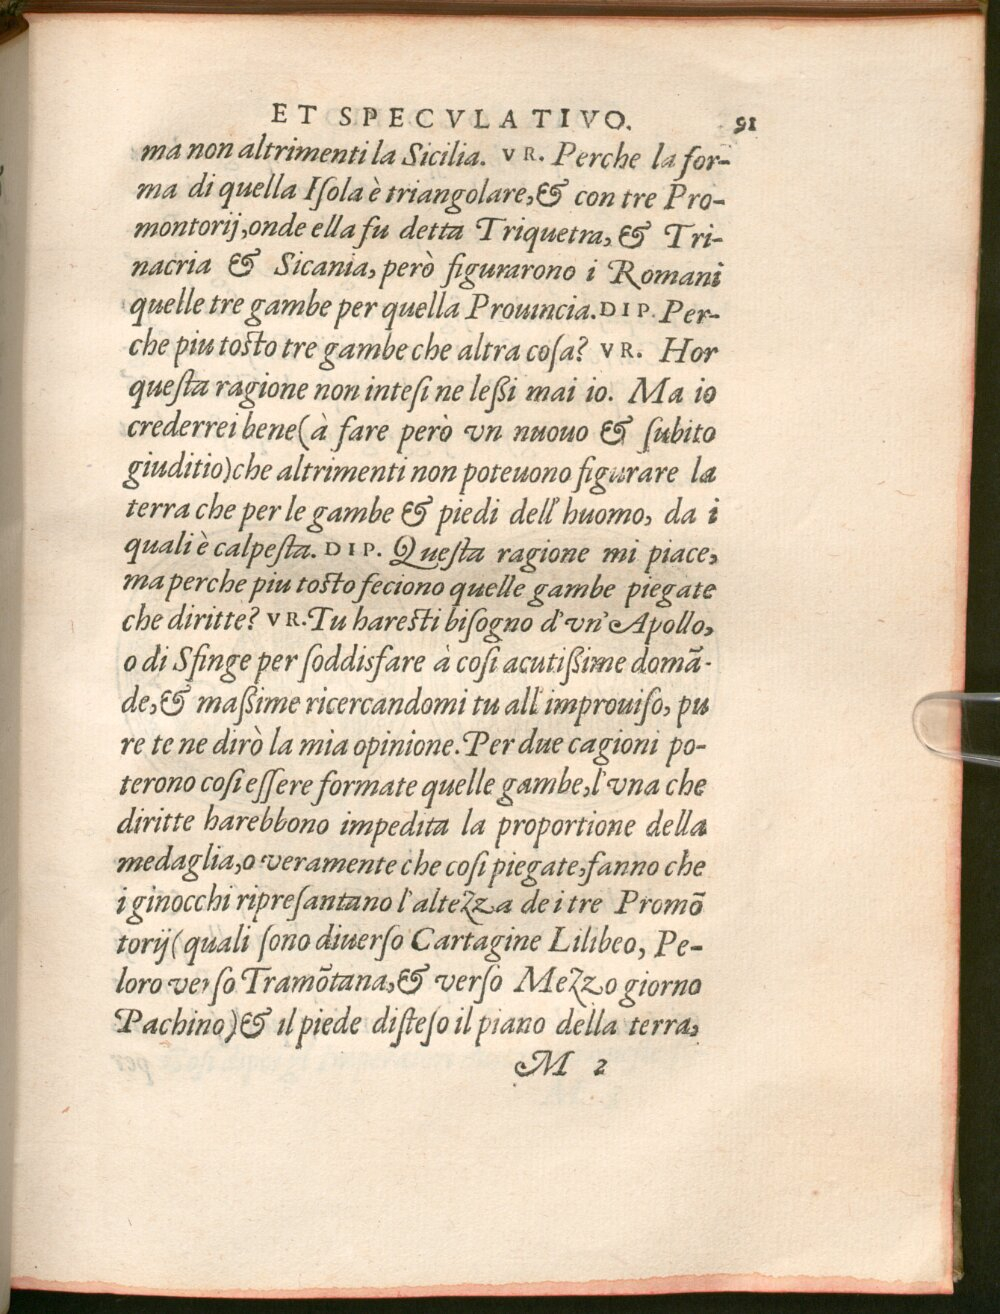 ET SPECVLATIVO. 91
ma non altrimenti la Sicilia. VR. Perche la for-
ma di quella Iſola è triangolare, & con tre Pro-
montorij, onde ella fu detta Triquetra, & Tri-
nacria & Sicania, però figurarono i Romani
quelle tre gambe per quella Prouincia. DIP. Per-
che piu toſto tre gambe che altra coſa? VR. Hor
queſta ragione non inteſi ne leßi mai io. Ma io
crederrei bene (à fare però vn nuouo & ſubito
giuditio) che altrimenti non poteuono figurare la
terra che per le gambe & piedi dell' huomo, da i
quali è calpeſta. DIP. Queſta ragione mi piace,
ma perche piu toſto feciono quelle gambe piegate
che diritte? VR. Tu hareſti biſogno d'vn' Apollo,
o di Sfinge per ſoddisfare à coſi acutißime domā-
de, & maßime ricercandomi tu all'improuiſo, pu
re te ne dirò la mia opinione. Per due cagioni po-
terono coſi eſſere formate quelle gambe, l'vna che
diritte harebbono impedita la proportione della
medaglia, o veramente che coſi piegate, fanno che
i ginocchi ripreſantano l'altezza de i tre Promō
torij (quali ſono diuerſo Cartagine Lilibeo, Pe-
loro verſo Tramōtana, & verſo Mezzo giorno
Pachino) & il piede diſteſo il piano della terra,
M 2